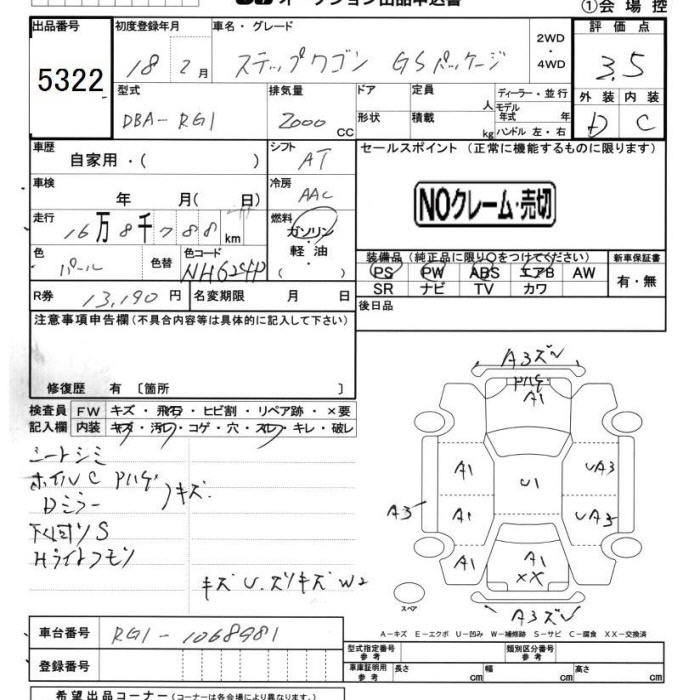 オークション出品申込書
①会場控
出品番号 初度登録年月 車名・グレード 評価点
5322 18 2月 ステップワゴン GSパッケージ 2WD・4WD 3.5
型式 排気量 ドア 定員 人 ディーラー・並行 外装 内装
DBA-RG1 2000 CC 形状 積載 kg モデル年式 年 ハンドル 左・右 D C
車歴 自家用・( ) シフト AT セールスポイント (正常に機能するものに限ります)
車検 年 月( 日) 冷房 AAC
NOクレーム・売切
走行 16万8千788km 燃料 ガソリン・軽油・( )
色 パール 色替 色コード NH624P
装備品 (純正品に限り○をつけてください) 新車保証書
PS PW ABS エアB AW 有・無
SR ナビ TV カワ
R券 13,190円 名変期限 月 日 後日品
注意事項申告欄 (不具合内容等は具体的に記入して下さい)
修復歴 有 〔箇所 〕
検査員 FW キズ・飛石・ヒビ割・リペア跡・×要
記入欄 内装 キズ・汚れ・コゲ・穴・スレ・キレ・破レ
シートシミ
ホイルC Pハゲ
Dミラー キズ
下回りS
Hライトクモリ
キズU.ズリキズW2
A3ズレ
Pハゲ
A1
A1 U1 UA3
A3 A1 UA3
A1 A1 A1
XX
スペア
A3ズレ
A-キズ E-エクボ U-凹み W-補修跡 S-サビ C-腐食 XX-交換済
車台番号 RG1-1068981
型式指定番号 参考 類別区分番号 参考
登録番号 車庫証明用 参考 長さ cm 幅 cm 高さ cm
希望出品コーナー(コーナーは各会場により異なります。)